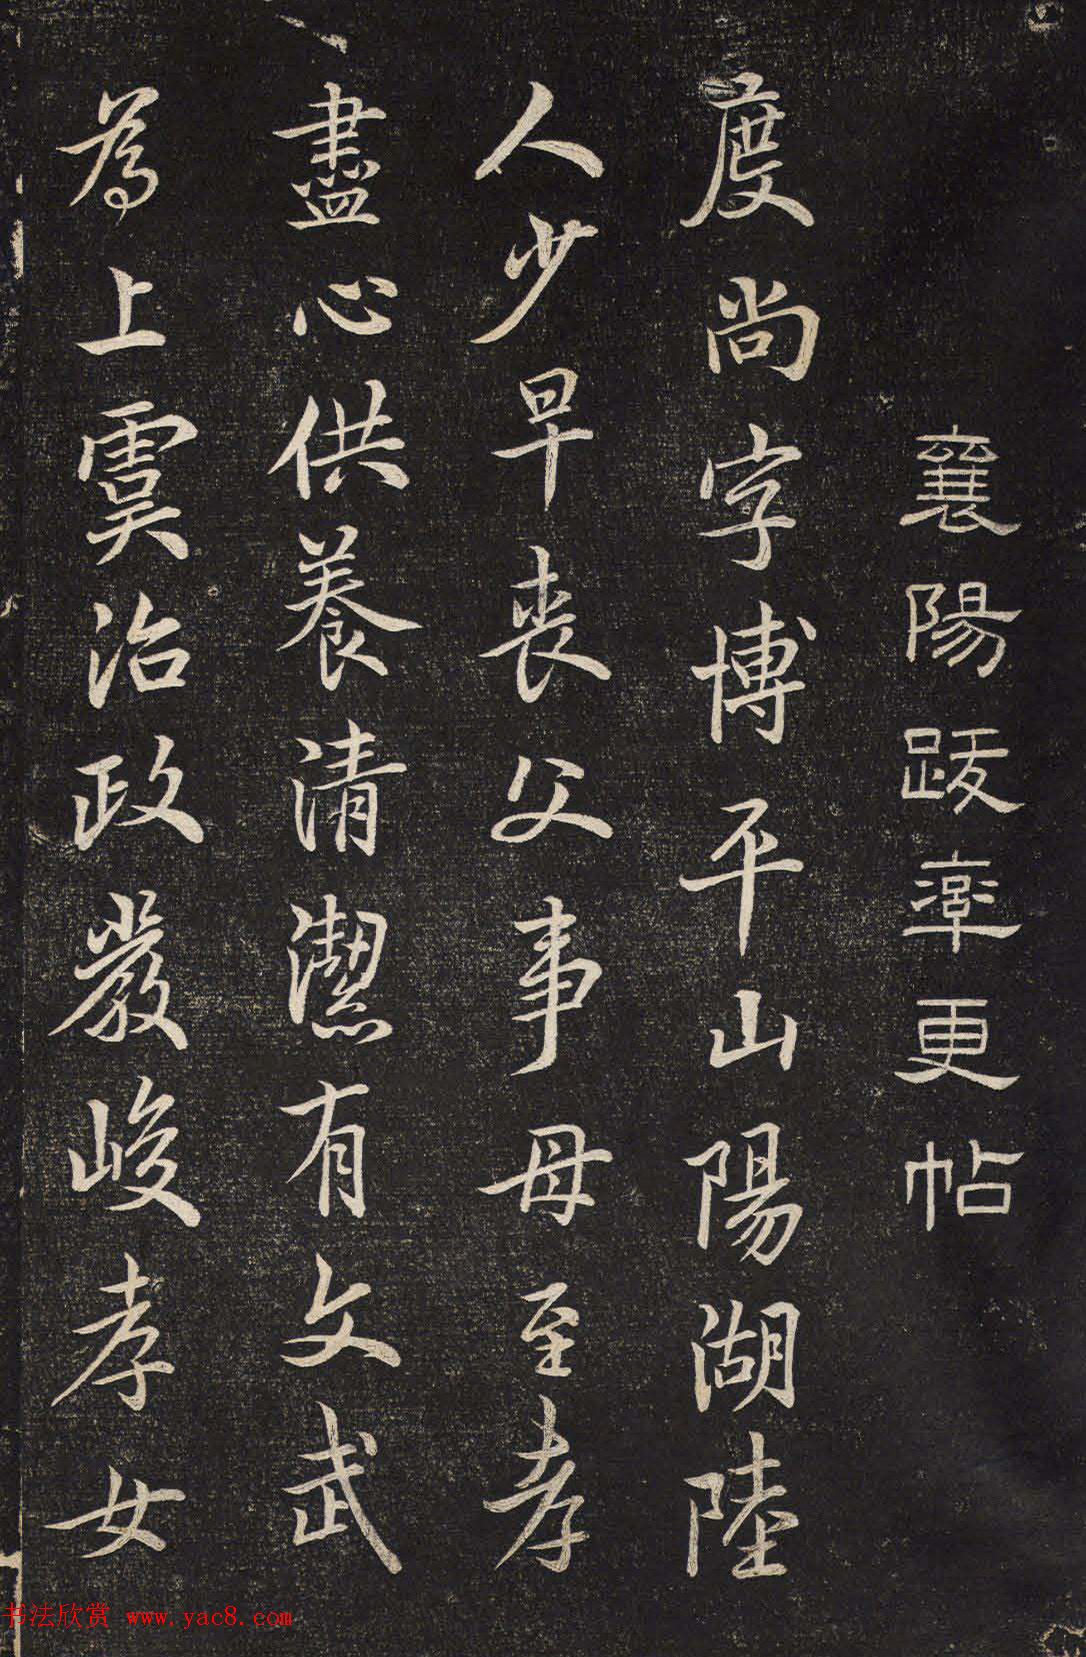 襄陽跋率更帖
度尚字博平山陽湖陸
人少早喪父事母至孝
盡心供養清潔有文武
為上虞治政嚴峻孝女
书法欣赏 www.yac8.com